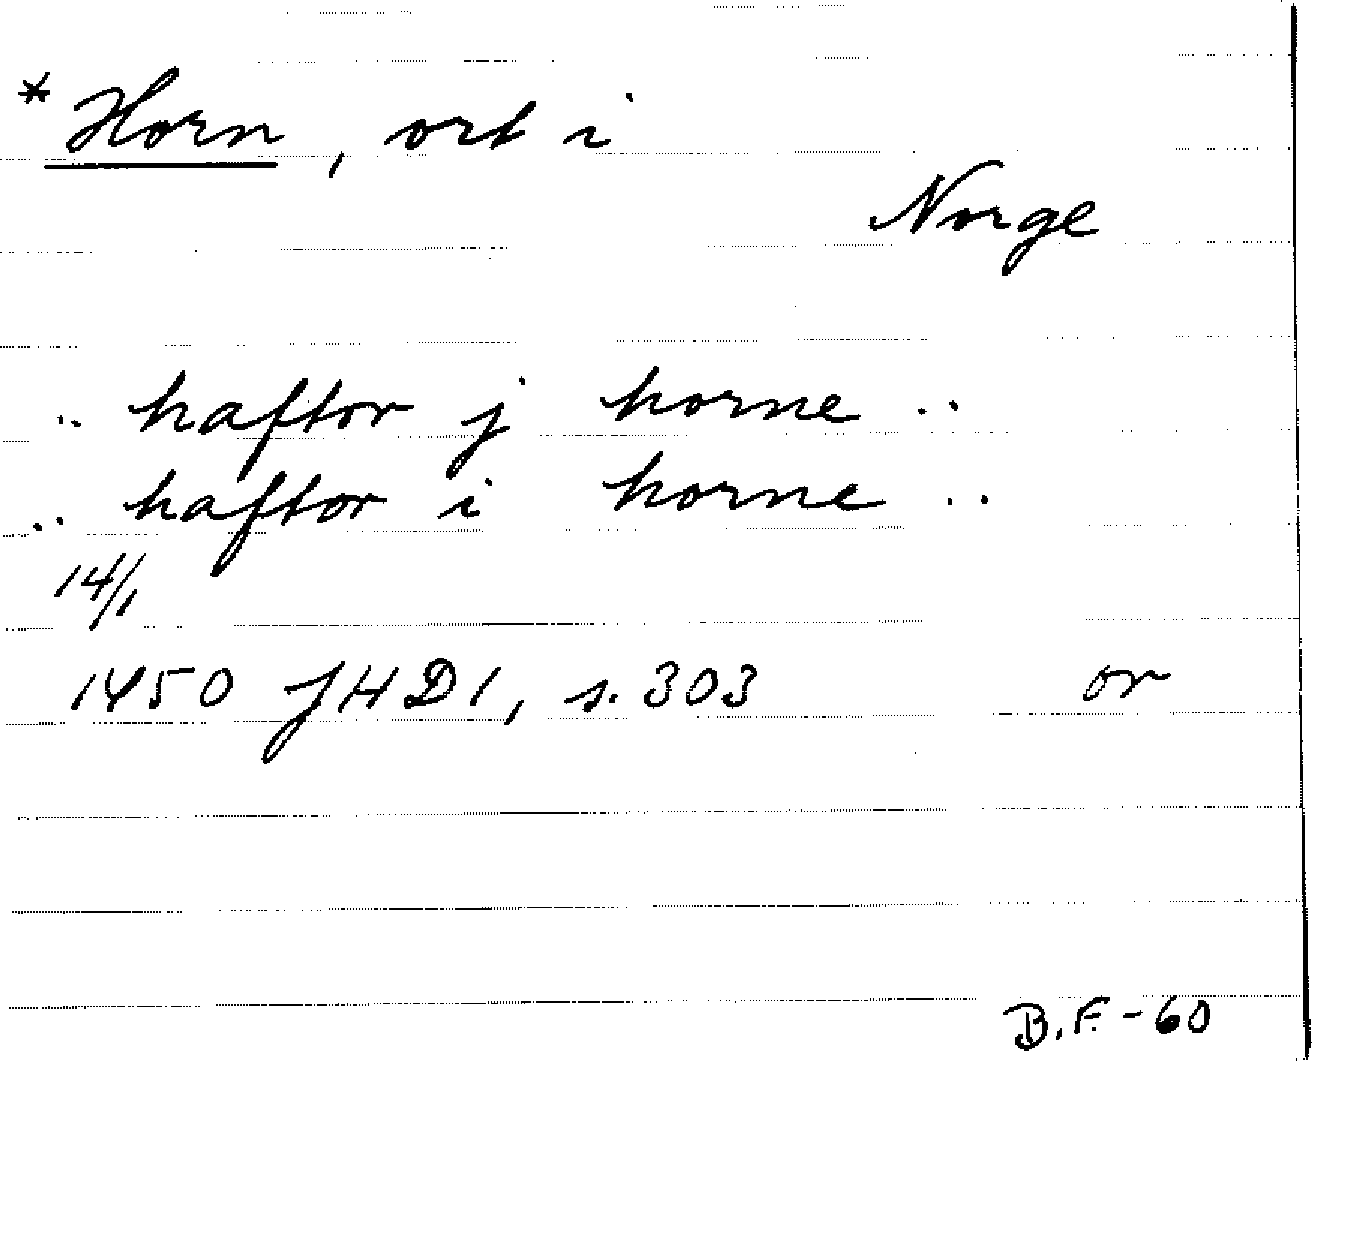 * Horn, ort i
Norge
.. haftor j horne ..
.. haftor i horne ..
14/1
1450 JHD1, s. 303 or
B.F. - 60